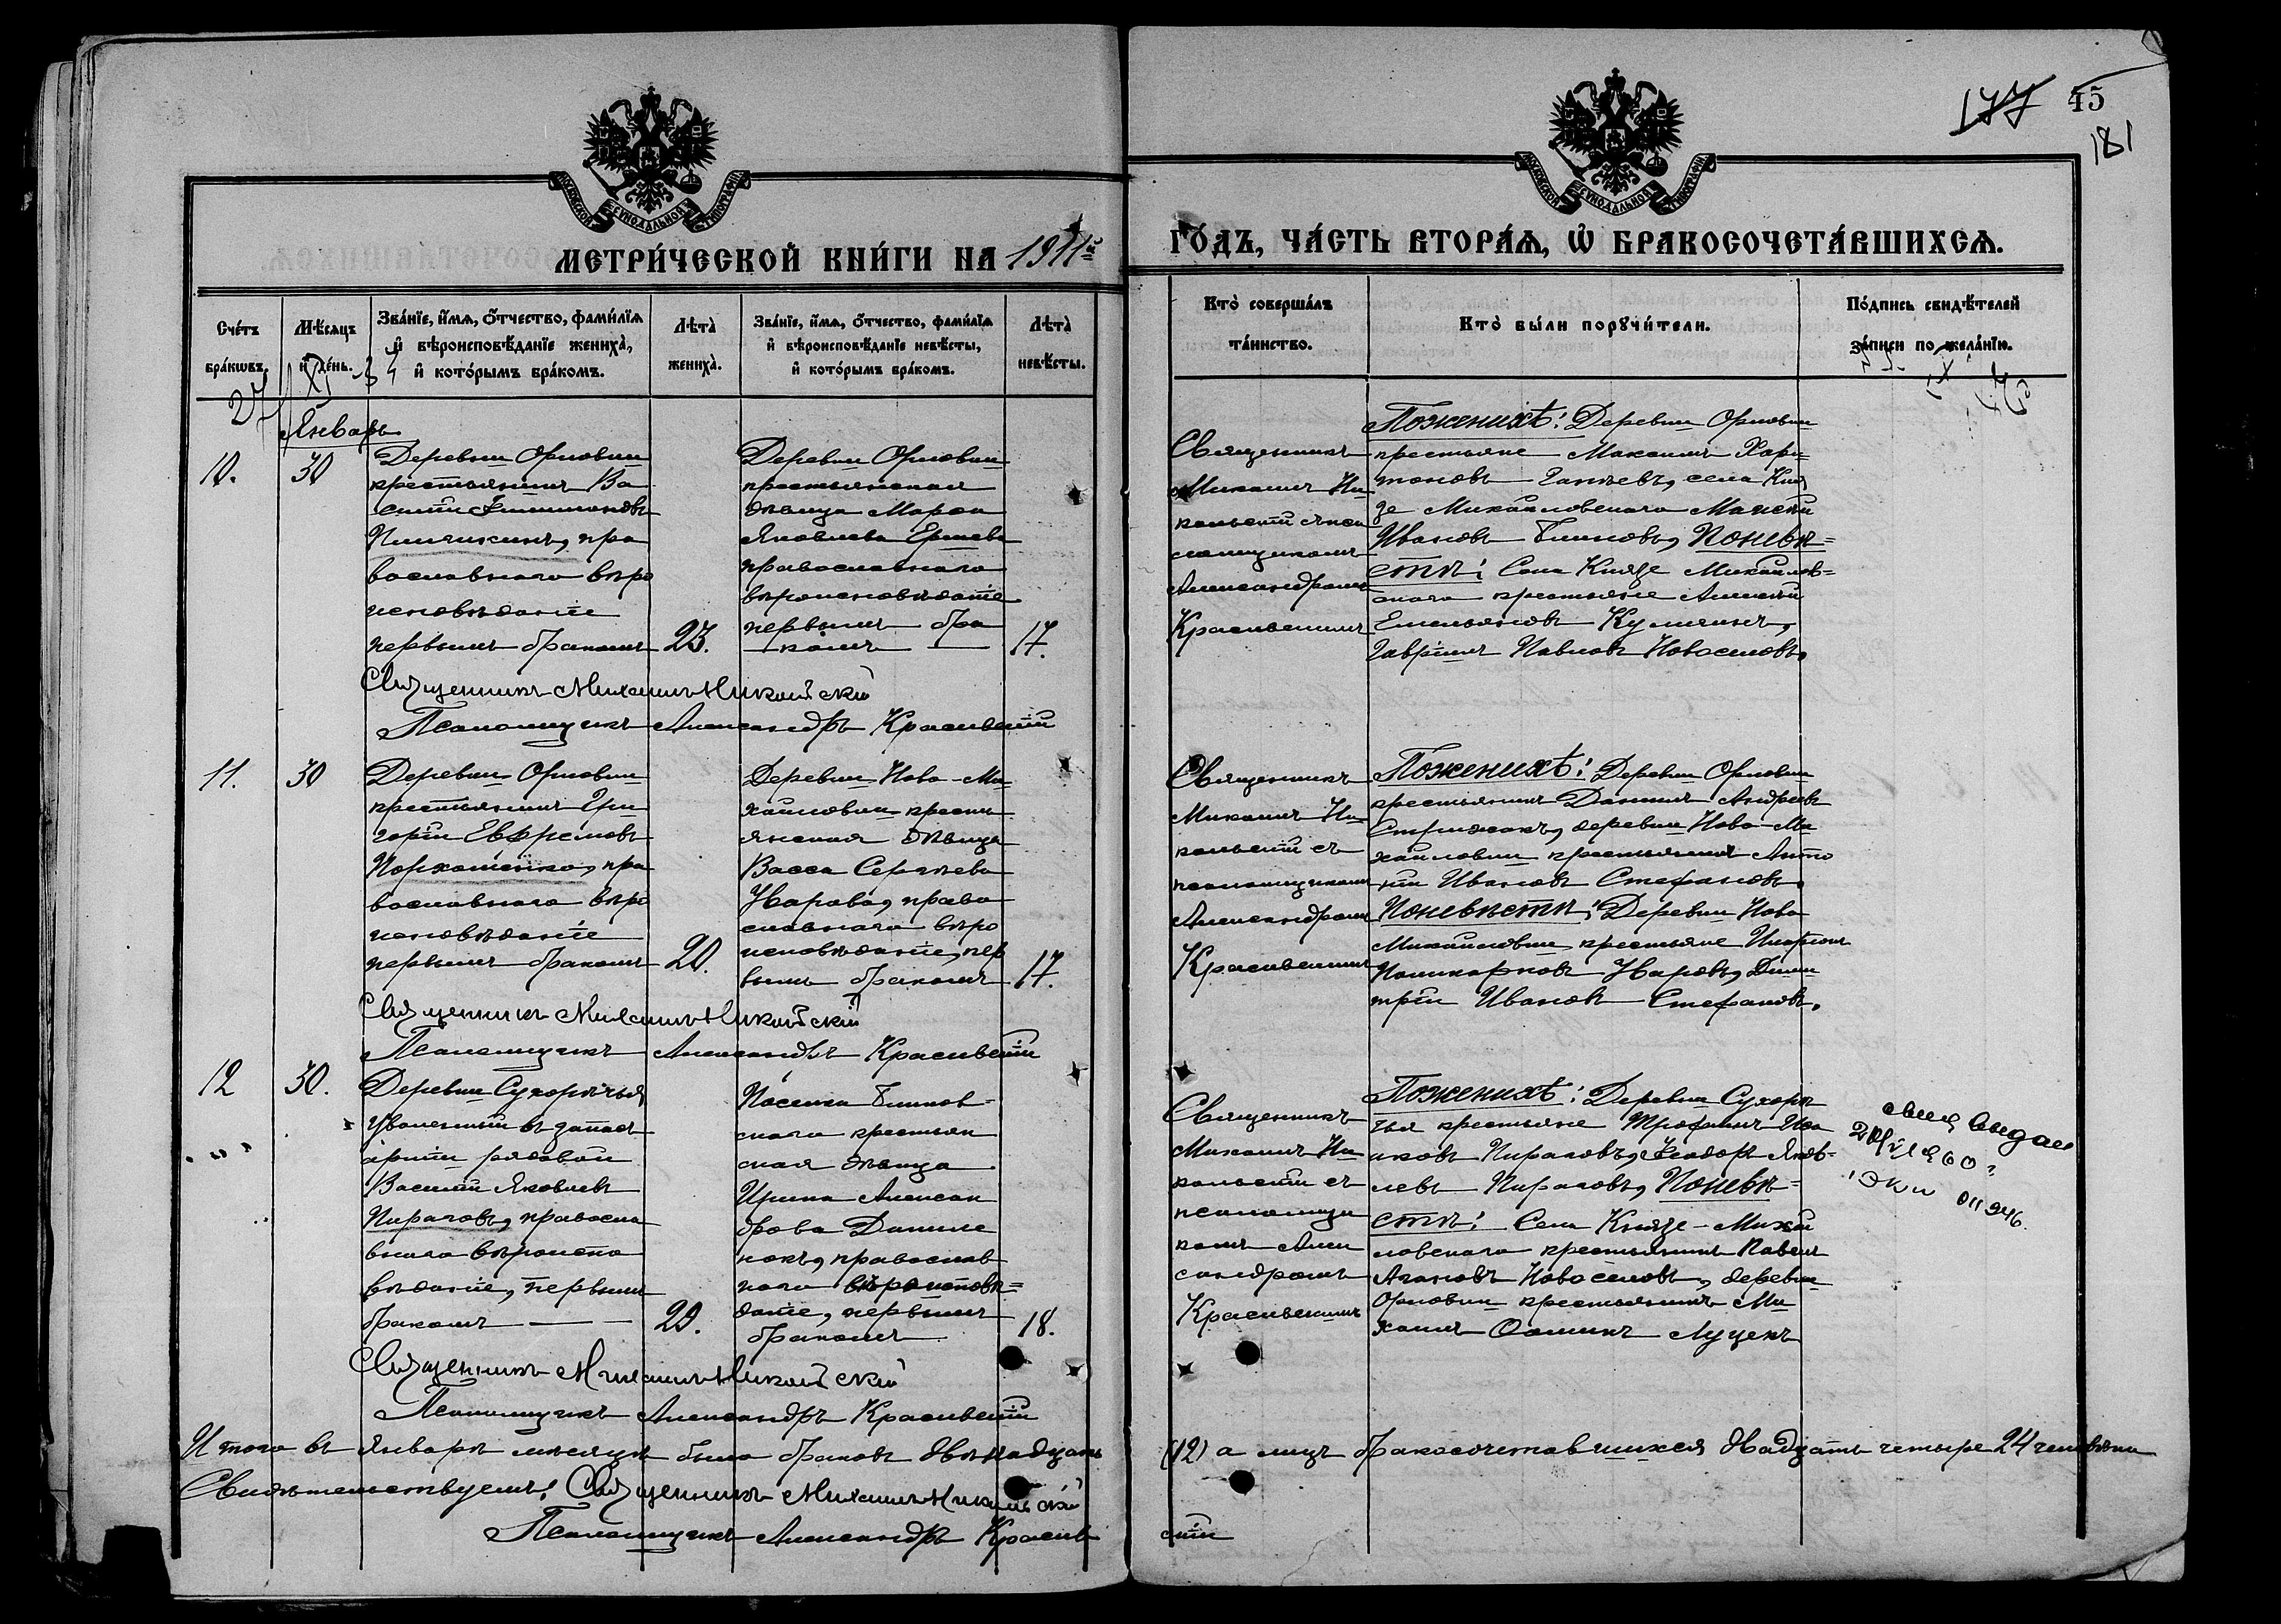 177 45
181
МЕТРИ́ЧЕСКОЙ КНИ́ГИ НА 1911й
ГО́ДЪ, ЧА́СТЬ ВТОРА́Ѧ, Ѿ БРАКОСОЧЕТА́ВШИХСѦ.
Сче́тъ бра́кѡвъ.
Мѣ́сяцъ и де́нь.
Зва́нїе, и́мѧ, ѻ́тчество, фами́лїѧ
и вѣроисповѣ́данїе жениха̀,
и кото́рымъ бра́комъ.
Лѣта̀ жениха̀.
Зва́нїе, и́мѧ, ѻ́тчество, фами́лїѧ
и вѣроисповѣ́данїе невѣ́сты,
и кото́рымъ бра́комъ.
Лѣта̀ невѣ́сты.
Кто̀ соверша́лъ
та́инство.
Кто̀ бы́ли порꙋчи́тели.
По́дпись свидѣ́телей
за́писи по жела́нїю.
Январь
10.
30
Деревни Орловки
крестьянинъ Ва
силій Филимоновъ
Пичикинъ, пра
вославнаго вѣро
исповѣданія
первымъ бракомъ
23.
Деревни Орловки
крестьянская
дѣвица Марѳа
Яковлева Ершева
православнаго
вѣроисповѣданія
первымъ бра
комъ
17.
Священникъ
Михаилъ Ни
кольскій съ пса
ломщикомъ
Александромъ
Красивскимъ
По женихѣ: Деревни Орловки
крестьяне Максимъ Хари=
тоновъ Гантевъ, села Кня
зе Михайловскаго Матвѣй
Ивановъ Блиновъ, По невѣ=
стѣ: Села Князе Михайлов=
скаго крестьяне Алексѣй
Емельяновъ Куличинъ,
Гавріилъ Павловъ Новоселовъ.
Священникъ Михаилъ Никольскій
Псаломщикъ Александръ Красивскій
11.
30
Деревни Орловки
крестьянинъ Гри
горій Евфремовъ
Пархоменко, пра
вославнаго вѣро
исповѣданія
первымъ бракомъ
20.
Деревни Ново-Ми
хайловки кресть
янская дѣвица
Васса Сергѣева
Жарова, право
славнаго вѣро
исповѣданія, пер
вымъ бракомъ
17.
Священникъ
Михаилъ Ни
кольскій съ
псаломщикомъ
Александромъ
Красивскимъ
По женихѣ: Деревни Орловки
крестьянинъ Даніилъ Андреевъ
Стрижакъ, деревни Ново-Ми
хайловки крестьянинъ Анто
ній Ивановъ Стефановъ.
По невѣстѣ: Деревни Ново
Михайловки крестьяне Иларіонъ
Поликарповъ Жаровъ, Дими
трій Ивановъ Стефановъ.
Священникъ Михаилъ Никольскій
Псаломщикъ Александръ Красивскій
12
30.
Деревни Сухорѣчья
уволенный въ запасъ
арміи рядовой
Василій Яковлевъ
Пираговъ, правосла
внаго вѣроиспо
вѣданія, первымъ
бракомъ
29.
Поселка Блинов-
скаго крестьян
ская дѣвица
Ирина Алексан
дрова Даниле
нокъ, православ
наго вѣроисповѣ=
данія, первымъ
бракомъ
18.
Священникъ
Михаилъ Ни
кольскій съ
псаломщи
комъ Алек
сандромъ
Красивскимъ
По женихѣ: Деревни Сухорѣ
чья крестьяне Трофимъ Иса
аковъ Пираговъ, Ѳеодоръ Яков=
левъ Пираговъ, По невѣ=
стѣ: Села Князе-Михай
ловскаго крестьянинъ Павелъ
Агаповъ Новоселовъ, деревни
Орловки крестьянинъ Ми
хаилъ Луценъ
Священникъ Михаилъ Никольскій
Псаломщикъ Александръ Красивскій
Итого въ Январѣ мѣсяцѣ было браковъ двѣнадцать
(12) а лицъ бракосочетавшихся двадцать четыре 24 человѣка
Свидѣтельствуемъ: Священникъ Михаилъ Никольскій
Псаломщикъ Александръ Красив
скій